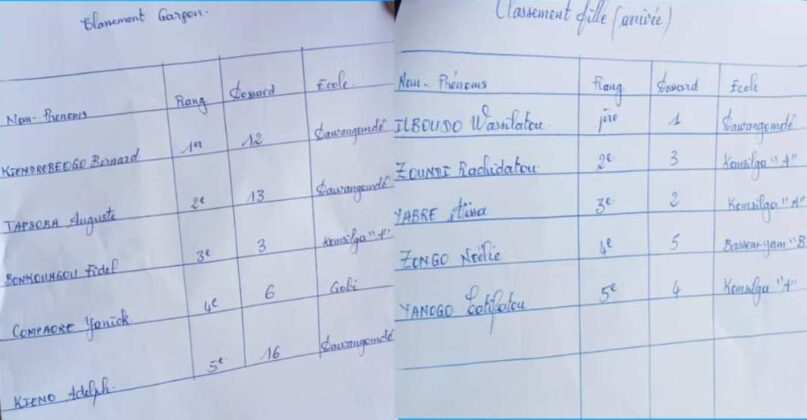 Classement Garçon.
Nom - Prénoms Rang Dossard Ecole
KIENDREBEOGO Bernard 1er 12 Sawangomdé
TAPSOBA Auguste 2e 13 Sawangomdé
BONKOUNGOU Fidel 3e 3 Komsilga "A"
COMPAORE Yanick 4e 6 Gobi
KIENO Adolph. 5e 16 Sawangomdé
Classement fille (arrivée)
Nom - Prénoms Rang Dossard Ecole
ILBOUDO Wassilatou 1ère 1 Sawangomdé
ZOUNDI Rachidatou 2e 3 Komsilga "A"
YABRE Aïssa 3e 2 Komsilga "A"
ZONGO Noëlie 4e 5 Bassemyam "B
YANOGO Latifatou 5e 4 Komsilga "A"